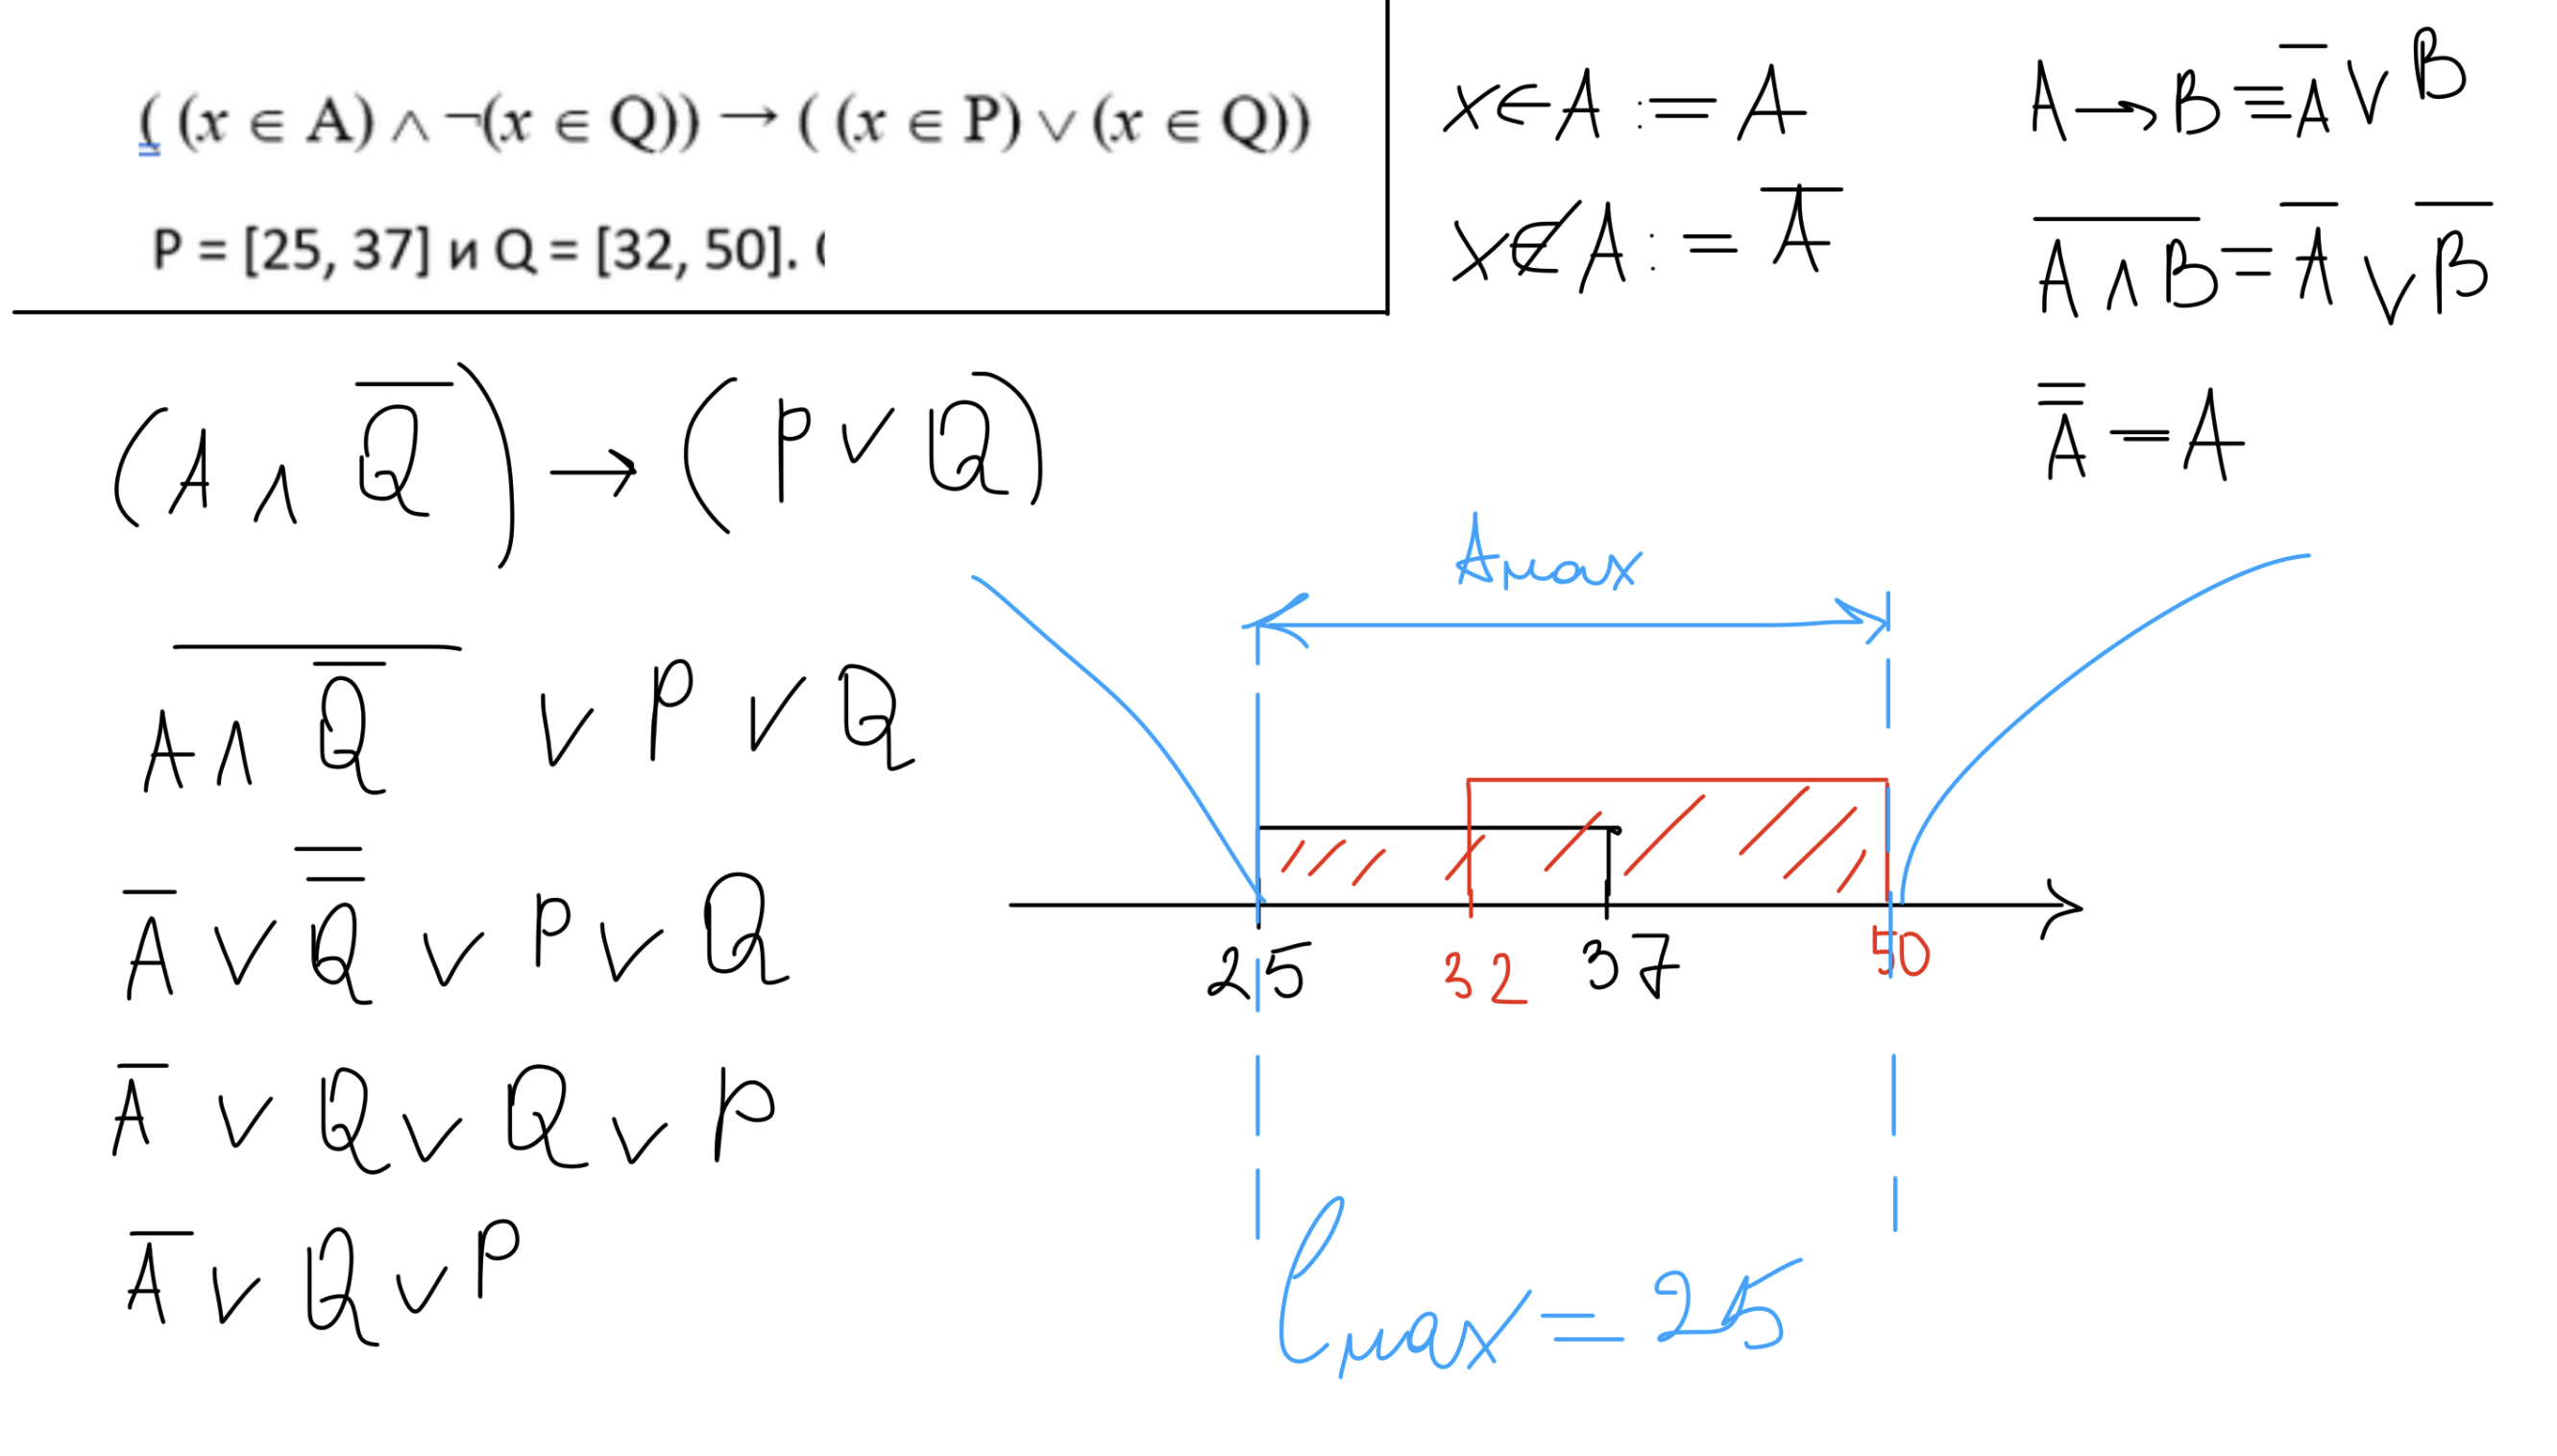 ( (x ∈ A) ∧ ¬(x ∈ Q)) → ( (x ∈ P) ∨ (x ∈ Q))
P = [25, 37] и Q = [32, 50].
x∈A := A
x∉A := A̅
A→B ≡ A̅ ∨ B
\overline{A∧B} = A̅ ∨ B̅
A̿ = A
(A ∧ Q̅) → (P ∨ Q)
\overline{A∧Q̅} ∨ P ∨ Q
A̅ ∨ Q̿ ∨ P ∨ Q
A̅ ∨ Q ∨ Q ∨ P
A̅ ∨ Q ∨ P
Amax
25 32 37 50
lmax = 25